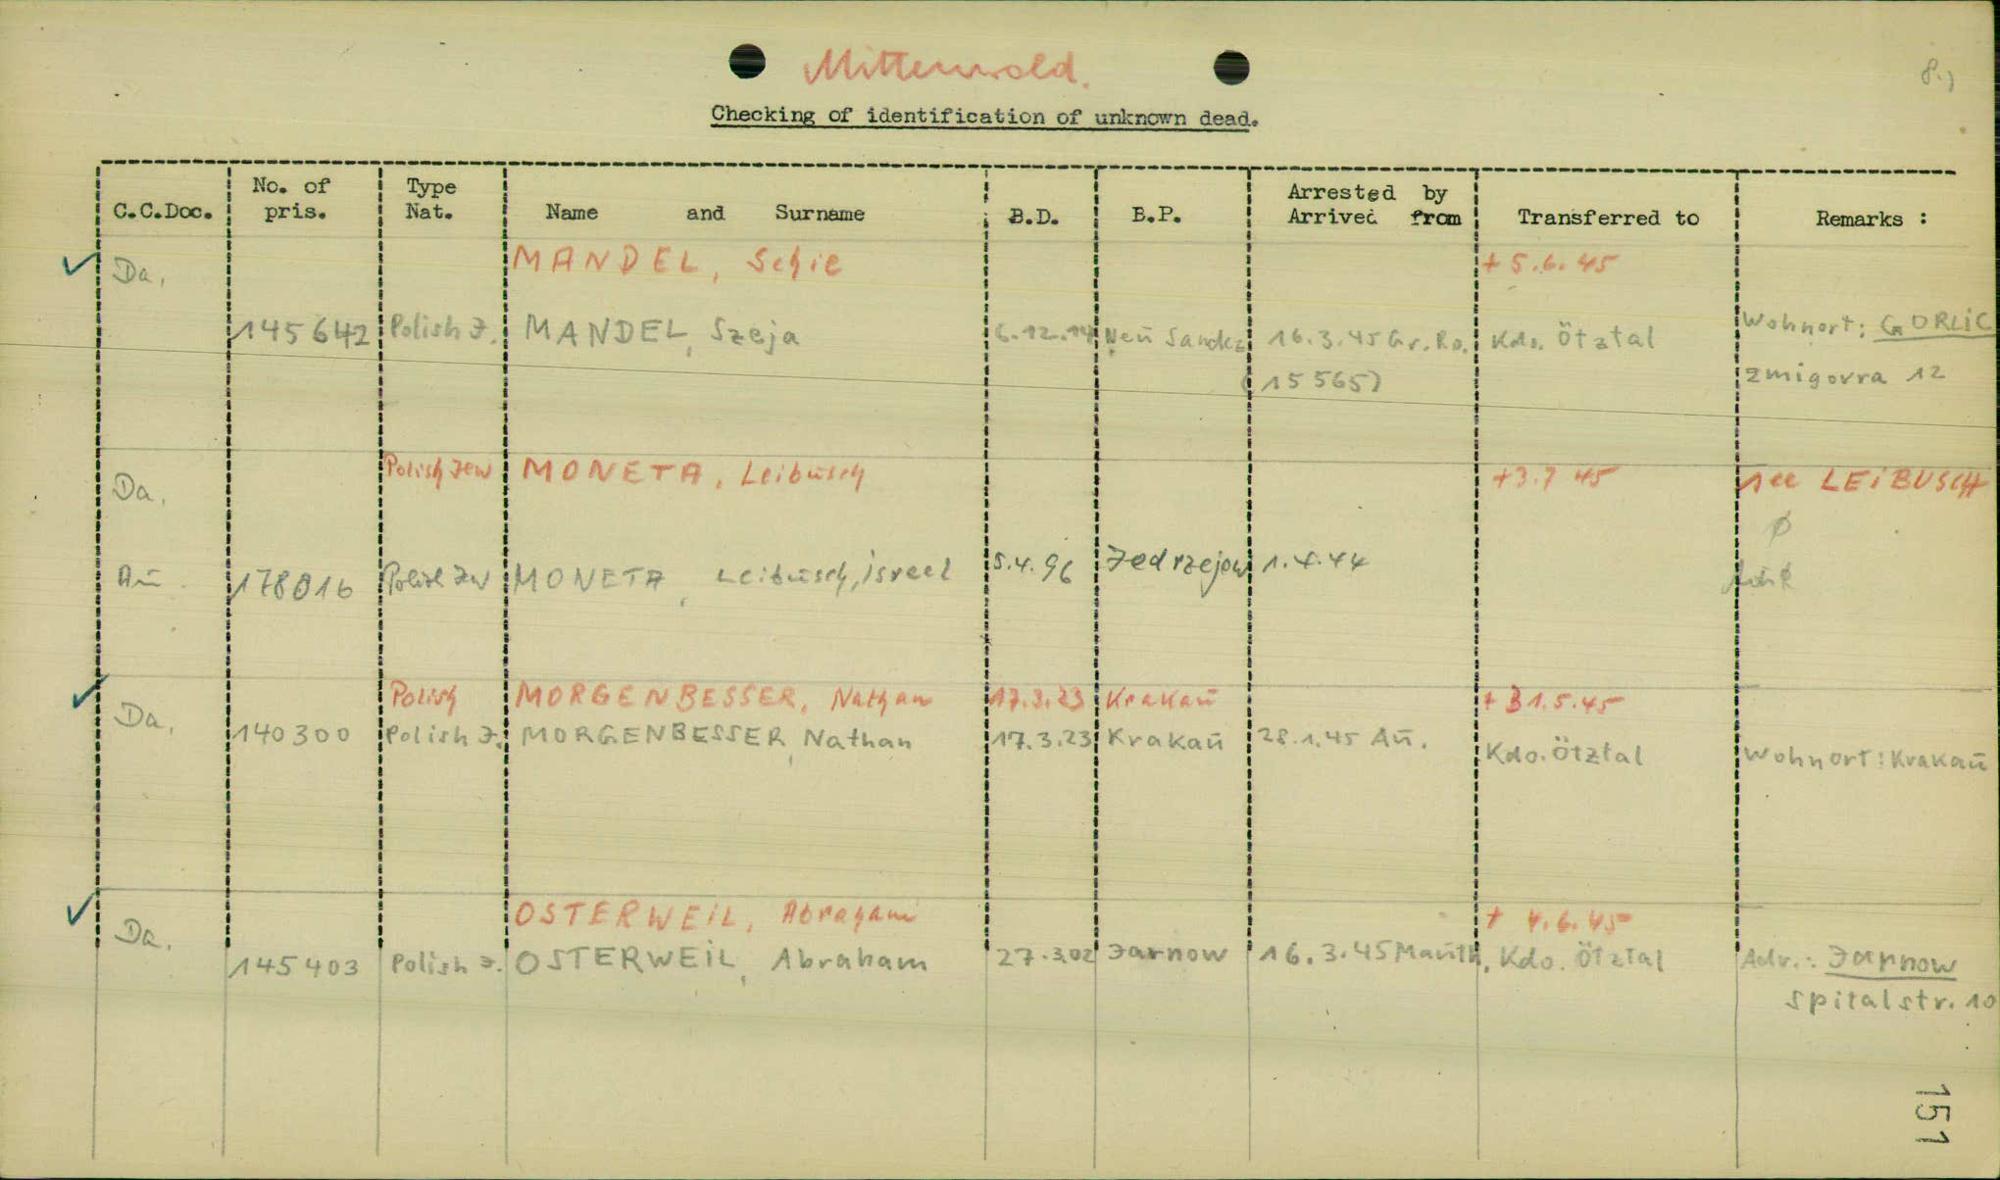 Mittenwald.
8.)
Checking of identification of unknown dead.
C.C.Doc. No. of pris. Type Nat. Name and Surname B.D. B.P. Arrested by Arrived from Transferred to Remarks :
MANDEL, Schie + 5.6.45
Da.
145642 Polish J. MANDEL, Szeja 6.12.14 Neu Sandez 16.3.45 Gr. Ro. Kdo. Ötztal Wohnort: GORLIC
(15565) Zmigorra 12
Polish Jew MONETA, Leibusch +3.7 45 see LEIBUSCH
Da.
Au 178016 Polish Jew MONETA, Leibusch, Israel 5.4.96 Jedrzejow 1.4.44
Polish MORGENBESSER, Nathan 17.3.23 Krakau + 31.5.45
Da. 140300 Polish J. MORGENBESSER, Nathan 17.3.23 Krakau 28.1.45 Au. Kdo. Ötztal Wohnort: Krakau
OSTERWEIL, Abraham + 4.6.45
Da. 145403 Polish J. OSTERWEIL, Abraham 27.3.02 Tarnow 16.3.45 Mauth. Kdo. Ötztal Adr.: Tarnow
Spitalstr. 10
151